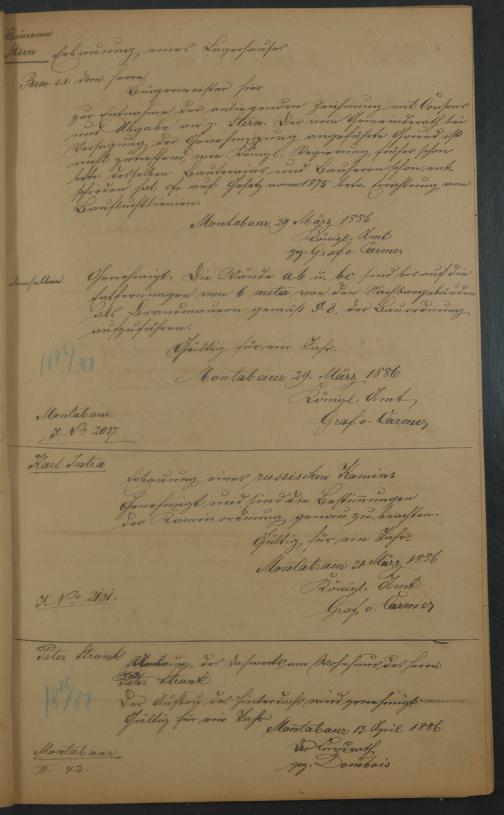 Stern
Erbauung eines Lagerhauses
Brm. s.r. dem Herrn
Bürgermeister hier
zur Entnahme der anliegenden Zeichnung mit Consens
und Abgabe an p. Stern. Der vom Gemeinderath bei
Versagung der Genehmigung angeführte Grund ist
nicht zutreffend, wie Königl. Regierung früher schon
betr. desselben und schon ent-
schieden hat. cfr auf Gesetz vom 1875 betr. Errichtung von
Baufluchtlinien.
Montabaur 29 März 1886
Königl. Amt
gz. Graf v. Carmer
demselben
Genehmigt. Die Wände ab u. bc. sind bis auf die
Entfernungen von 6 meter von den Nachbargebäuden
als Brandmauern gemäß §. 8. der Bauordnung
aufzuführen.
Gültig für ein Jahr.
1886/87
Montabaur 29. März 1886
Königl. Amt
Graf v. Carmer
Montabaur
J. No 2037
Karl Intra
Erbauung eines russischen Kamins
Genehmigt und sind die Bestimmungen
der Kaminordnung genau zu beachten.
Gültig für ein Jahr.
Montabaur 31 März 1886
Königl. Amt
Graf v. Carmer
J. No 2131.
Peter Strunk
des am Wohnhaus des Herrn
Peter Strunk
Der des wird genehmigt
Gültig für ein Jahr
1886/87
Montabaur 13 April 1886
Der Landrath
gez. Dombois
Montabaur
II 42.